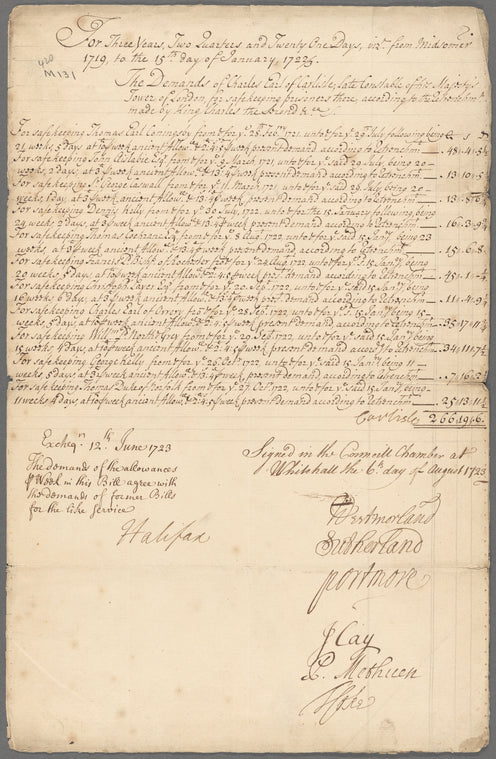 For Three Years, Two Quarters, and Twenty One Days, from Midsomer
1719, to the 15th day of January, 1722/3.
420
M131
The Demands of Charles Earl of Carlisle, late Constable of his Majesty's
Tower of London, for safe keeping prisoners there, according to the
made by King Charles the Second &c.
£ s d
For safe keeping Thomas Earl Coningsby from ye 28 Feb 1721, unto ye 29 July following being
21 weeks, 5 days, at 10 p week ancient Allow & 2.4.5 p week present demand according to 48.4.
For safe keeping John Aislabie Esqr from ye 9 March, 1721, unto ye said 29 July, being 20
weeks, 2 days, at 3 p week ancient Allow & 13.4 p week present demand according to 13.10.5
For safe keeping Sr George Caswall from ye 11 March, 1721, unto ye said 29 July, being 20
weeks 1 day, at 3 p week ancient Allow & 13.4 p week present demand according to 13.8.
For safe keeping Dennis Kelly from ye 30 July, 1722, unto ye 15 January following, being
24 weeks 2 days, at 3 p week ancient Allow & 13.4 p week present demand according to 16.3.9
For safe keeping Thomas Esqr from ye Aug 1722, unto ye said 15 Jany being 23
weeks, at 3 p week ancient Allow & 13.4 p week present demand according to 15.6.8
For safe keeping Francis Ld Bishop of Rochester from ye 24 Aug 1722 unto ye 15 Jany being
20 weeks, 5 days, at 10 p week ancient Allow & 2.4.5 p week present demand according to 45.
For safe keeping Christoph Layer Esqr from ye 20 Sep 1722, unto ye said 15 Jany being
16 weeks, 6 day, at 3 p week ancient Allow & 13.4 p week present demand according to 11.4.9
For safe keeping Charles Earl of Orrery from ye 28 Sep 1722, unto ye 15 Jany being 15
weeks, 5 days, at 10 p week ancient Allow & 2.4.5 p week present demand according to 35.17.
For safe keeping Willm Ld North & Grey from ye 29 Sep 1722, unto ye said 15 Jany being
15 weeks, 4 days, at 10 p week ancient Allow & 2.4.5 p week present demand according to 34.11.7
For safe keeping George Kelly from ye 26 Octr 1722, unto ye said 15 Jany being 11
weeks, 5 days, at 3 p week ancient Allow & 13.4 p week present demand according to 7.16.
For safe keeping Thomas Duke of Norfolk from ye 27 Octr 1722, unto ye said 15 Jany being
11 weeks, 4 days, at 10 p week ancient Allow & 2.4.5 p week present demand according to 25.13.
Carlisle 266.19.6.
Excheqr 12th June 1723
The demands of the allowances
p Week in this Bill agree with
the demands of former Bills
for the like service
Halifax
Signed in the Councill Chamber at
Whitehall the 6th day of August 1723
Westmorland
Sutherland
portmore
Cay
P. Methuen